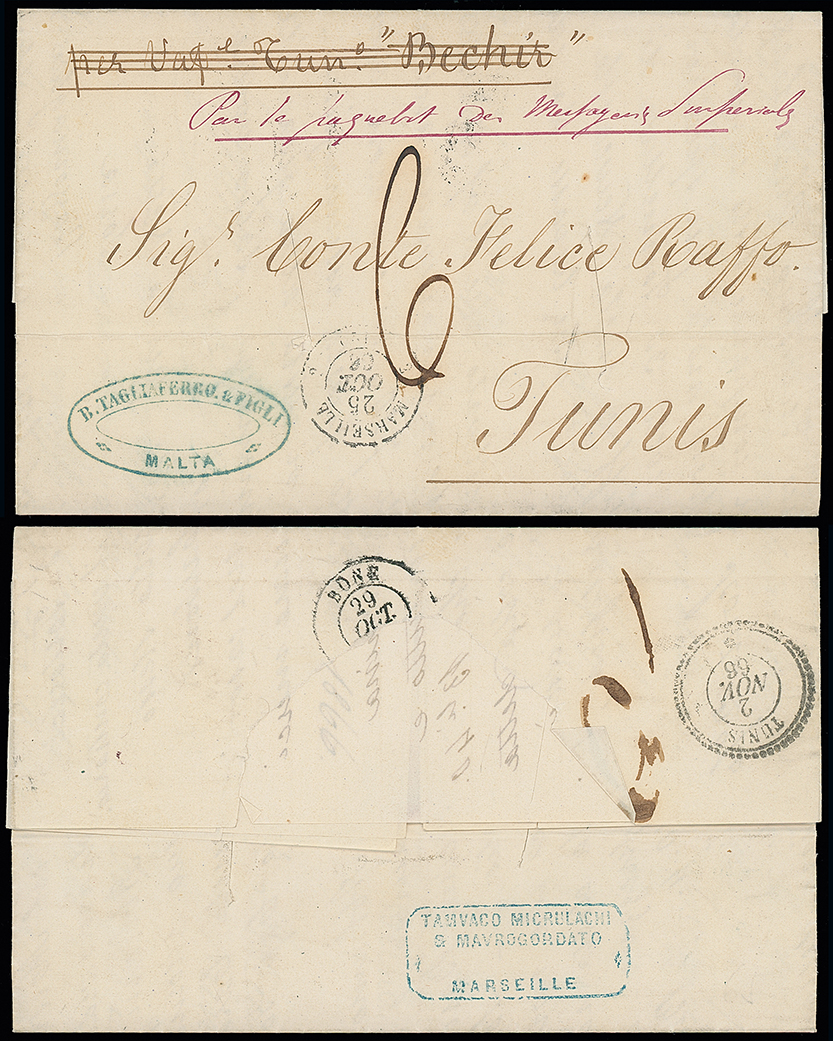 per Vap.e Tun.o "Bechir"
Par le paquebot des Messageries Imperiales
Sig.r Conte Felice Raffo.
6
Tunis
B. TAGLIAFERRO. & FIGLI
MALTA
MARSEILLE
25
OCT.
BÔNE
29
OCT.
TUNIS
2
NOV.
66
1866
TAMVACO MICRULACHI
& MAVROGORDATO
MARSEILLE